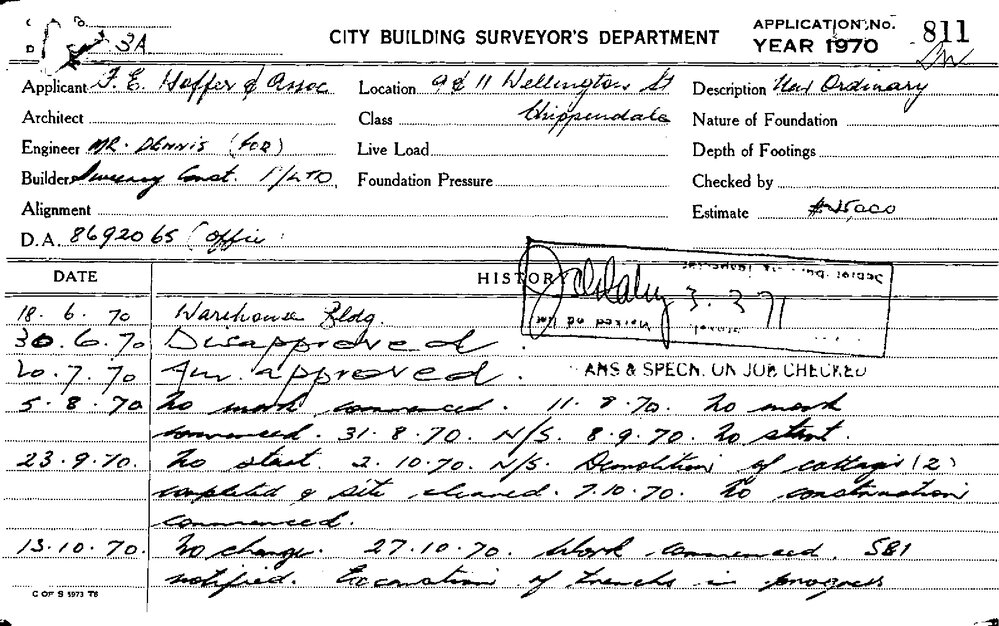 3A
CITY BUILDING SURVEYOR'S DEPARTMENT
APPLICATION No. 811
YEAR 1970
Applicant F. E. Hoffer & Assoc Location 9 & 11 Wellington St Description New Ordinary
Architect Class Chippendale Nature of Foundation
Engineer MR. DENNIS (FOR) Live Load Depth of Footings
Builder Sweeney Const. P/LTD. Foundation Pressure Checked by
Alignment Estimate
D.A. 8692065 (Office
DATE HISTORY
3.3.71
18.6.70 Warehouse Bldg.
30.6.70 Disapproved
20.7.70 approved. ANS & SPECN. ON JOB CHECKED
5.8.70 No work commenced. 11.8.70. No work
commenced. 31.8.70. N/S. 8.9.70. No start.
23.9.70. No start. 2.10.70. N/S. Demolition of cottages (2)
completed & site cleared. 7.10.70. No construction
commenced.
13.10.70. No change. 27.10.70. Work commenced. S81
notified. Excavation of trenches in progress
C OF S 5973 T6